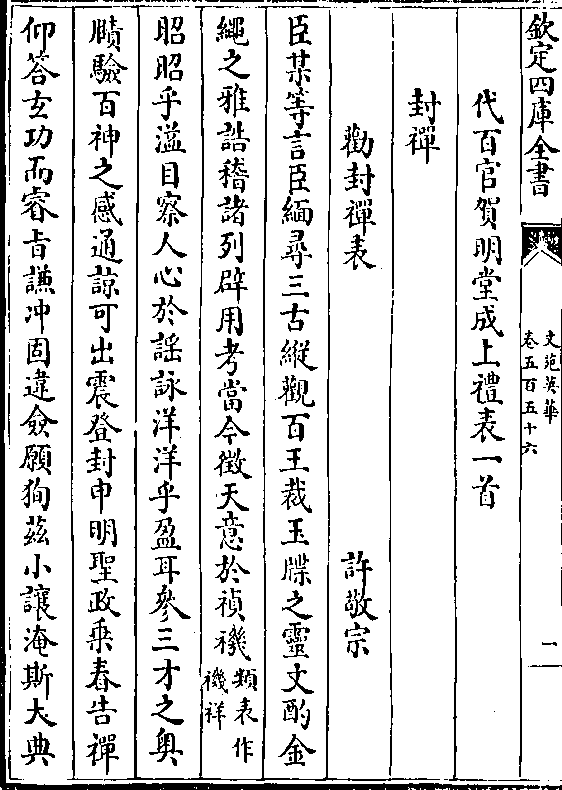 欽定四庫全書
文苑英華
卷五百五十六
一
代百官賀明堂成上禮表一首
封禪
勸封禪表
許敬宗
臣某等言臣緬尋三古縱觀百王裁玉牒之靈文酌金
繩之雅誥稽諸列辟用考當今徵天意於禎禨類表作禨祥
昭昭乎溢目察人心於謡詠洋洋乎盈耳參三才之奥
賾驗百神之感通諒可出震登封申明聖政乗春告禪
仰答玄功而睿㫖謙冲固違僉願狥兹小讓淹斯大典